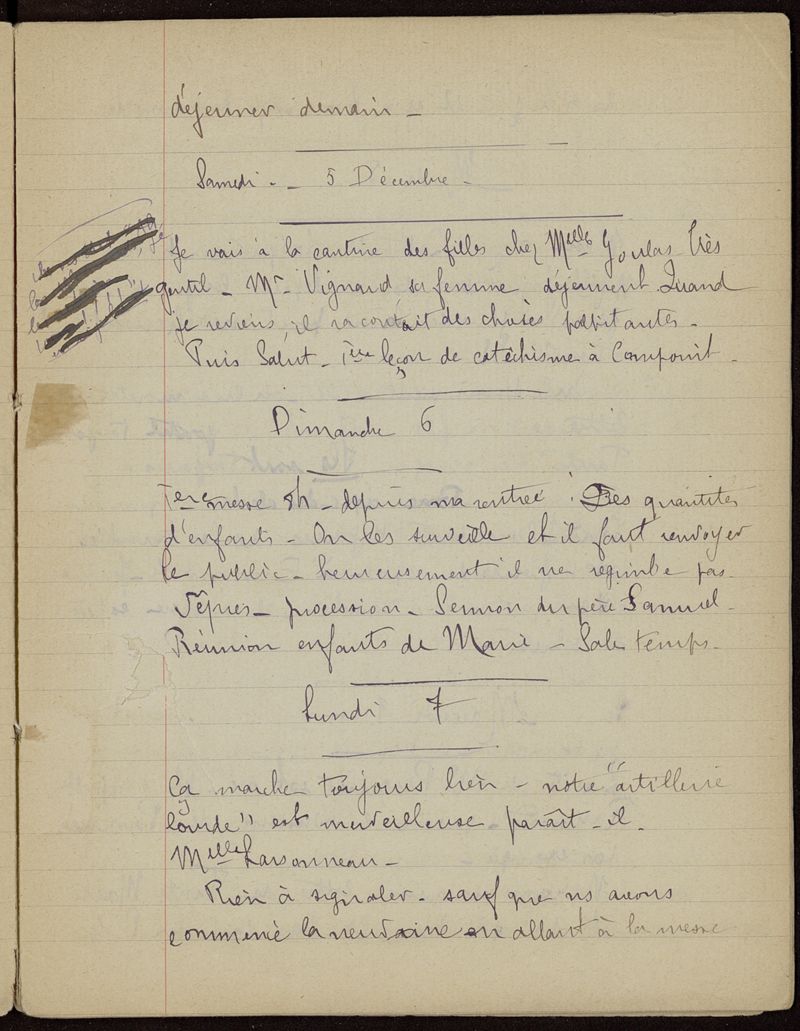 déjeuner demain -
Samedi - 5 Décembre -
Je vais à la cantine des filles chez Melle Goulas très
gentil - Mr Vignaud sa femme déjeunent. Quand
je reviens, il racontait des choses palpitantes -
Puis Salut - 1ère leçon de catéchisme à Compoint -
Dimanche 6
1ere messe 8h - depuis ma rentrée ! Des quantités
d'enfants - On les surveille et il faut renvoyer
le public - heureusement il ne regimbe pas.
Vêpres - procession - Sermon du père Samuel -
Réunion enfants de Marie - Sale temps -
Lundi 7
Ça marche toujours bien - notre "artillerie
lourde" est merveilleuse paraît-il.
Melle Larsonneau -
Rien à signaler - sauf que ns avons
commencé la neuvaine en allant à la messe